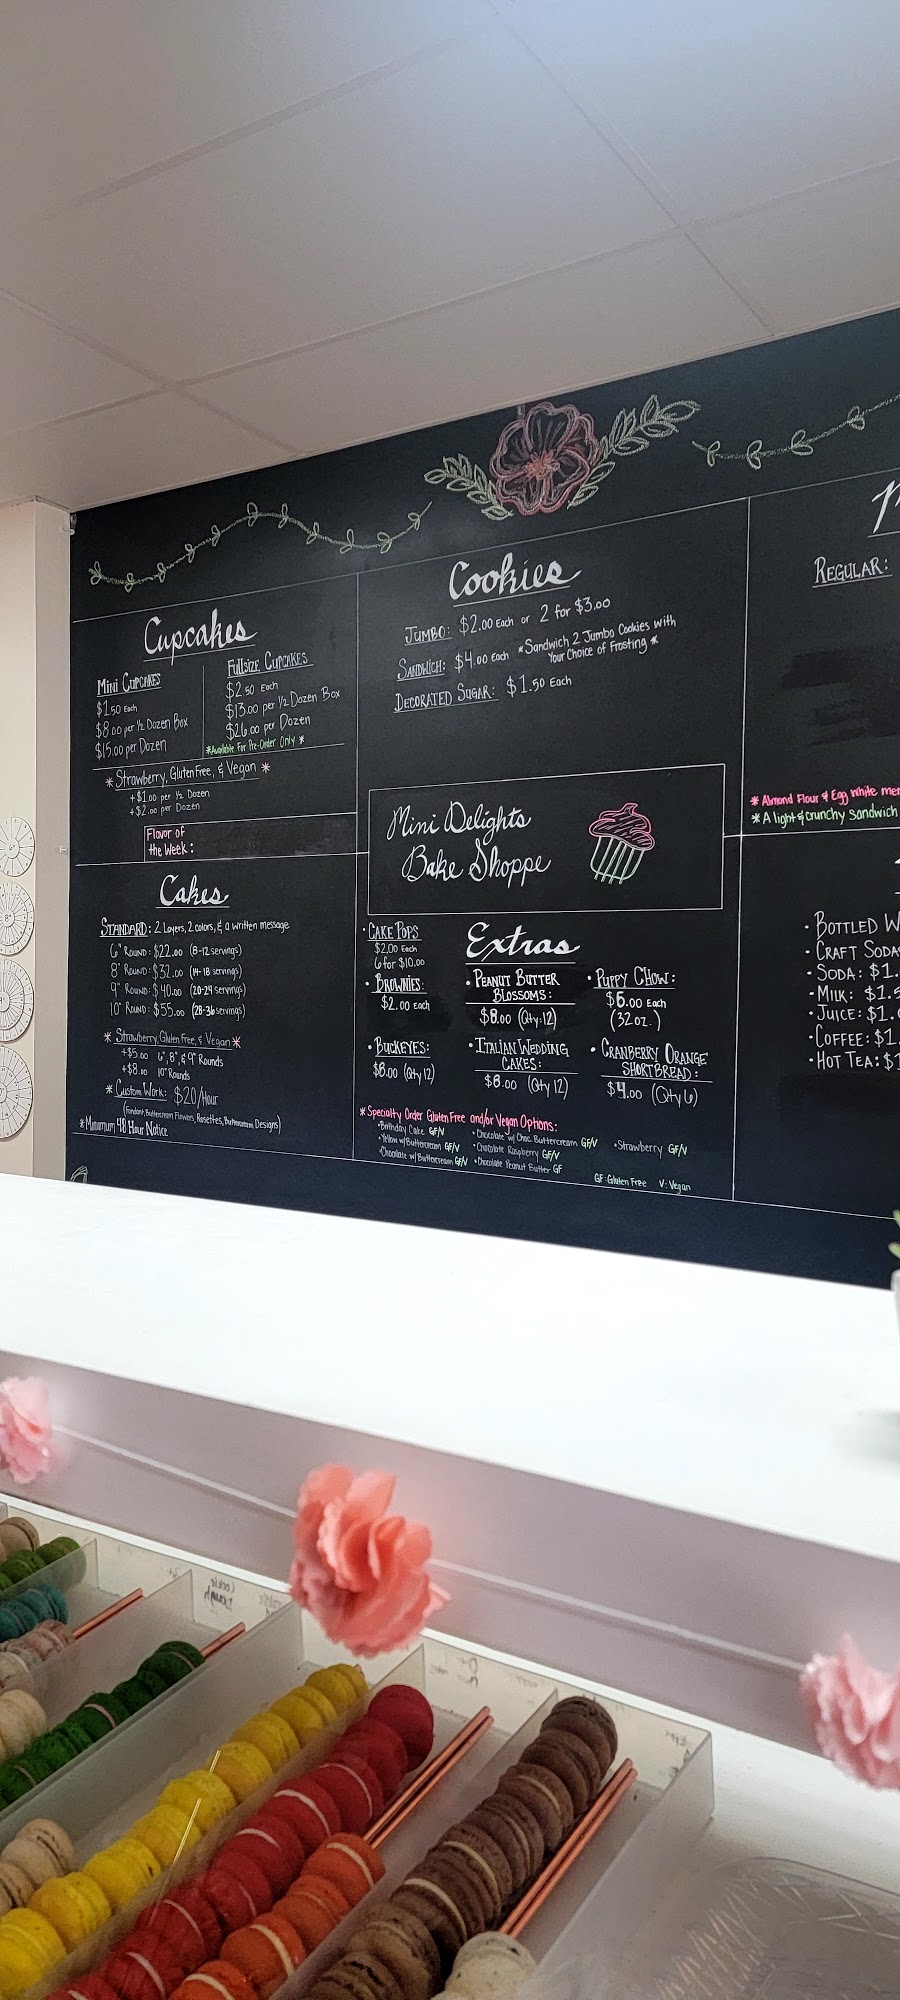 Cupcakes
Mini Cupcakes
$1.50 Each
$8.00 per ½ Dozen Box
$15.00 per Dozen
Fullsize Cupcakes
$2.50 Each
$13.00 per ½ Dozen Box
$26.00 per Dozen
*Available For Pre-Order Only*
* Strawberry, Gluten Free, & Vegan *
+$1.00 per ½ Dozen
+$2.00 per Dozen
Flavor of
the Week:
Cakes
Standard: 2 Layers, 2 colors, & a written message
6" Round: $22.00 (8-12 servings)
8" Round: $32.00 (14-18 servings)
9" Round: $40.00 (20-24 servings)
10" Round: $55.00 (28-36 servings)
* Strawberry, Gluten Free, & Vegan *
+$5.00 6", 8", & 9" Rounds
+$8.00 10" Rounds
* Custom Work: $20/Hour
(Fondant, Buttercream Flowers, Rosettes, Buttercream Designs)
*Minimum 48 Hour Notice
Cookies
Jumbo: $2.00 Each or 2 for $3.00
Sandwich: $4.00 Each *Sandwich 2 Jumbo Cookies with
Your Choice of Frosting*
Decorated Sugar: $1.50 Each
Mini Delights
Bake Shoppe
Extras
• Cake Pops
$2.00 Each
6 for $10.00
• Brownies:
$2.00 Each
• Buckeyes:
$8.00 (Qty 12)
• Peanut Butter
Blossoms:
$8.00 (Qty: 12)
• Italian Wedding
Cakes:
$8.00 (Qty 12)
• Puppy Chow:
$6.00 Each
(32oz.)
• Cranberry Orange
Shortbread:
$4.00 (Qty 6)
* Specialty Order Gluten Free and/or Vegan Options:
• Birthday Cake GF/V
• Yellow w/ Buttercream GF/V
• Chocolate w/ Buttercream GF/V
• Chocolate w/ Choc. Buttercream GF/V
• Chocolate Raspberry GF/V
• Chocolate Peanut Butter GF
• Strawberry GF/V
GF: Gluten Free V: Vegan
Regular:
* Almond Flour & Egg White
* A light & crunchy Sandwich
• Bottled
• Craft
• Soda: $1.
• Milk:
• Juice: $1.
• Coffee: $1.
• Hot Tea: